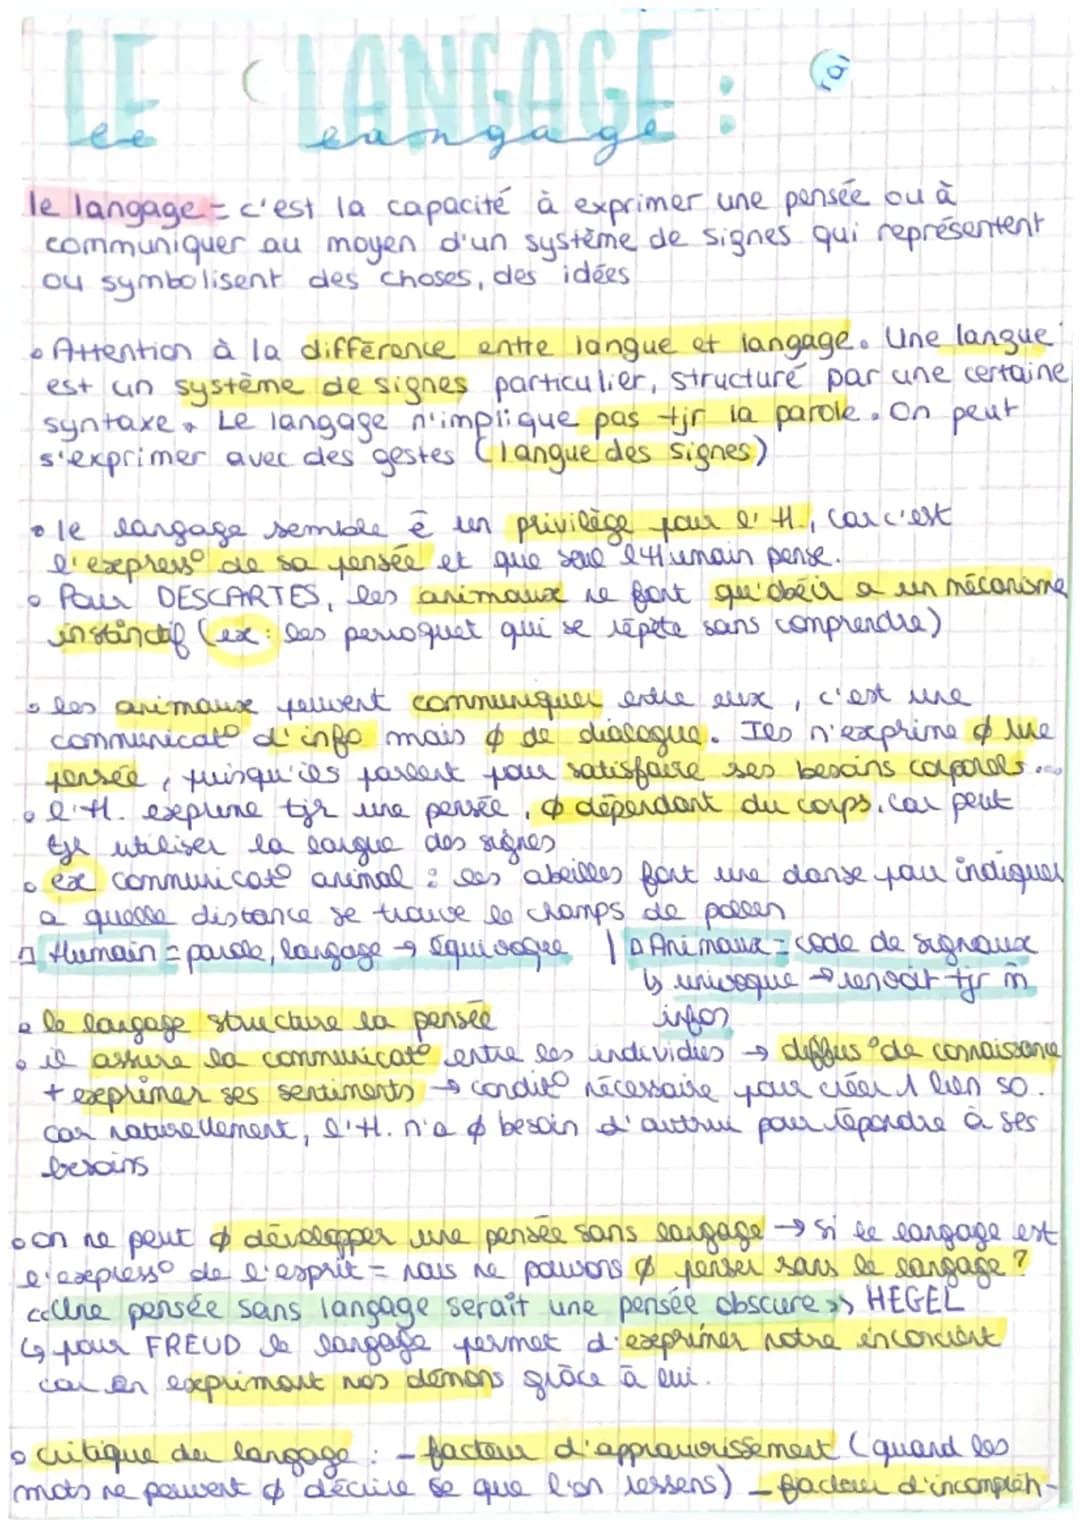 LE LANGAGE :
le langage
le langage = c'est la capacité à exprimer une pensée ou à
communiquer au moyen d'un système de signes qui représentent
ou symbolisent des choses, des idées
• Attention à la différence entre langue et langage. Une langue
est un système de signes particulier, structuré par une certaine
syntaxe. Le langage n'implique pas tjr la parole. On peut
s'exprimer avec des gestes (langue des signes)
• le langage semble ê un privilège pour l'H., car c'est
l'express° de sa pensée et que seul l'Humain pense.
• Pour DESCARTES, les animaux ne font qu'obéir a un mécanisme
instinctif (ex : les perroquet qui se répète sans comprendre)
• les animaux peuvent communiquer entre eux, c'est une
communicat° d'info mais ϕ de dialogue. Ils n'exprime ϕ une
pensée, puisqu'ils parlent pour satisfaire ses besoins corporels...
• l'H. exprime tjr une pensée, ϕ dépendant du corps. car peut
tjr utiliser la langue des signes
• ex communicat° animal : les abeilles font une danse pour indiquer
a quelle distance se trouve le champs de pollen
Humain = parole, langage → équivoque | Animaux = code de signaux
↳ univoque → renvoit tjr m̄
infos
• le langage structure la pensée
• il assure la communicat° entre les individies → diffus° de connaissance
+ exprimer ses sentiments → condit° nécessaire pour créer 1 lien so.
car naturellement, l'H. n'a ϕ besoin d'autrui pour répondre à ses
besoins
• on ne peut ϕ développer une pensée sans langage → si le langage est
l'express° de l'esprit = nous ne pouvons ϕ penser sans le langage ?
<<Une pensée sans langage serait une pensée obscure>> HEGEL
↳ pour FREUD le langage permet d'exprimer notre inconcient
car en exprimant nos démons grâce à lui.
• critique du langage : - facteur d'appauvrissement (quand les
mots ne peuvent ϕ décrire ce que l'on ressens) - facteur d'incompréh-